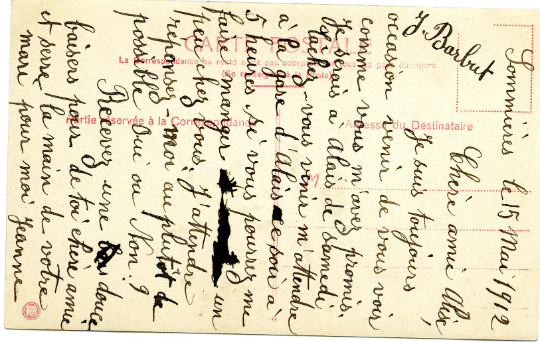 CARTE POSTALE
La Correspondance au recto n'est pas acceptée par tous les pays étrangers
(Se renseigner à la Poste)
Partie réservée à la Correspondance
Adresse du Destinataire
M
Sommières le 15 Mai 1912
Chère amie Alise,
Je suis toujours
occasion venir de vous voir
comme vous m'avez promis.
Je serais à Alais de samedi
tacher vous venir m'attendre
à la gare d'Alais ce soir à
5 heures, si vous pourrez me
fair manger un
peu chez vous. J'attendre
reponsez-moi au plutôt de
possible Oui ou Non ?
Recevez une douce
baisers pour de toi chère amie
et serre la main de votre
mari pour moi Jeanne
J. Barbut